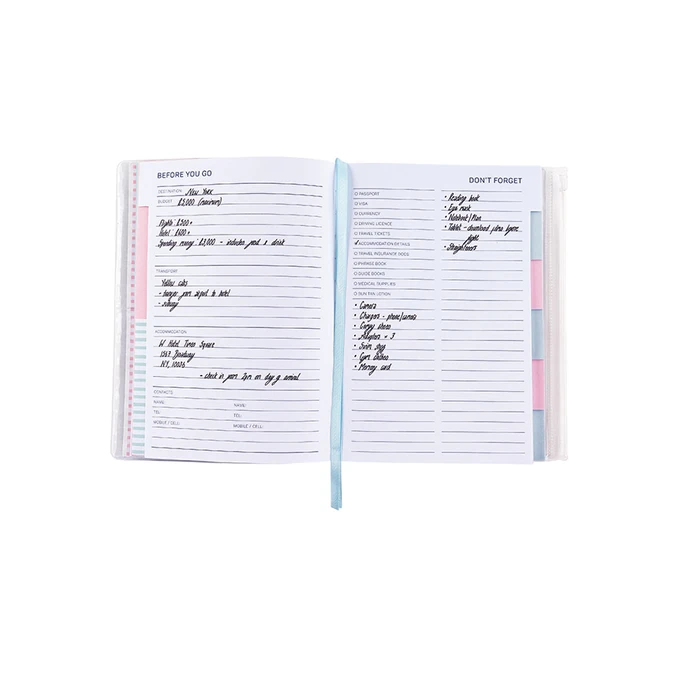 BEFORE YOU GO
DESTINATION: New York
BUDGET: £5,000 (maximum)
Flights £500+
Hotel £600+
Spending money £3,000 - includes food & drink
TRANSPORT
Yellow cabs
- transfer from airport to hotel
- subway
ACCOMMODATION
W Hotel Times Square
1567 Broadway
N.Y, 10036
- check in from 2pm on day of arrival
CONTACTS:
NAME: NAME:
TEL: TEL:
MOBILE / CELL: MOBILE / CELL:
DON'T FORGET
PASSPORT
VISA
CURRENCY
DRIVING LICENCE
TRAVEL TICKETS
ACCOMMODATION DETAILS
TRAVEL INSURANCE DOCS
PHRASE BOOK
GUIDE BOOKS
MEDICAL SUPPLIES
SUN TAN LOTION
• Camera
• Chargers - phone/camera
• Comfy shoes
• Adaptors x 3
• Swim stuff
• Gym clothes
• Memory card
• Reading book
• Eye mask
• Notebook/Pen
• Tablet - download films before
flight
• Straighteners